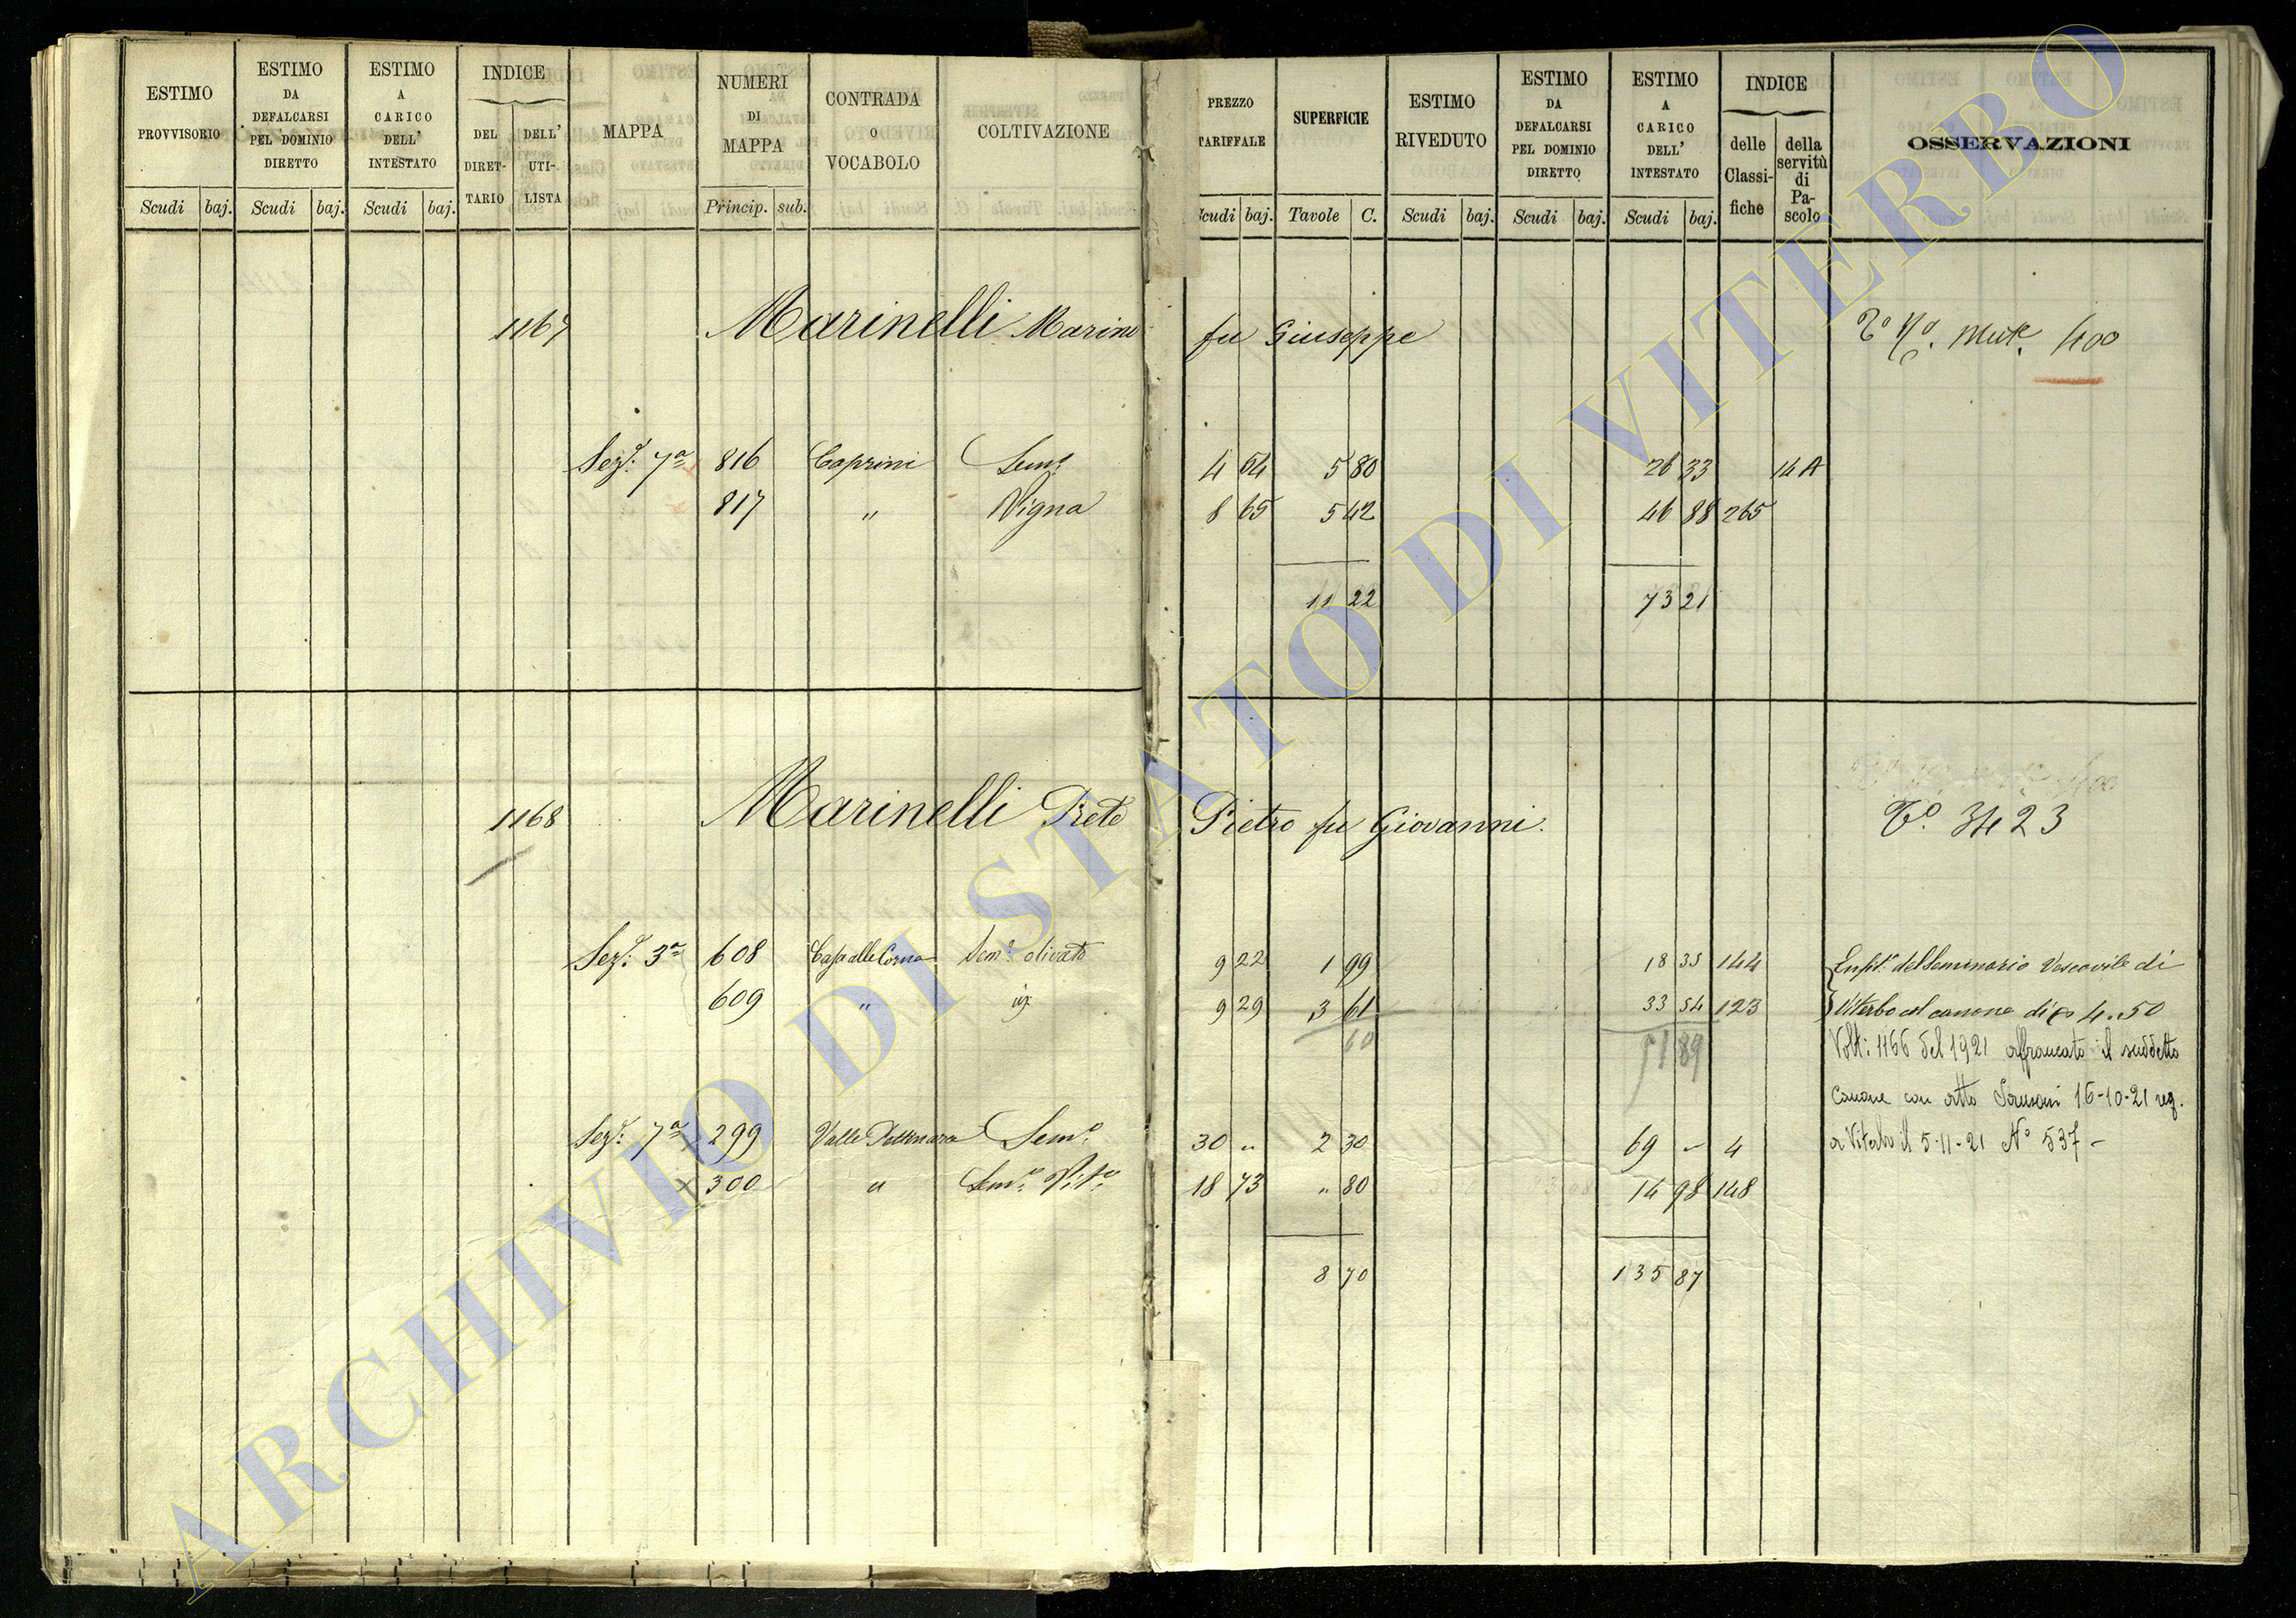 ESTIMO PROVVISORIO
Scudi baj.
ESTIMO DA DEFALCARSI PEL DOMINIO DIRETTO
Scudi baj.
ESTIMO A CARICO DELL' INTESTATO
Scudi baj.
INDICE
DEL DIRET-TARIO
DELL' UTI-LISTA
MAPPA
NUMERI DI MAPPA
Princip. sub.
CONTRADA O VOCABOLO
COLTIVAZIONE
PREZZO TARIFFALE
Scudi baj.
SUPERFICIE
Tavole C.
ESTIMO RIVEDUTO
Scudi baj.
ESTIMO DA DEFALCARSI PEL DOMINIO DIRETTO
Scudi baj.
ESTIMO A CARICO DELL' INTESTATO
Scudi baj.
INDICE
delle Classi-fiche
della servitù di Pa-scolo
OSSERVAZIONI
1167 Marinelli Marino fu Giuseppe 400
Sez.e 7a 816 Caprini Sem.o 4 54 5 80 26 33 14 A
817 " Vigna 8 65 5 42 46 88 265
11 22 73 21
1168 Marinelli Prete Pietro fu Giovanni. To. 3423
Sez.e 3a 608 Sem.o olivato 9 22 1 99 18 35 144 Enfit.a del Seminario Vescovile di
609 " id 9 29 3 61 33 54 123 Viterbo col canone di 4..50
60 51 89 Volt: 1166 del 1921 affrancato il suddetto
canone con atto 16-10-21 reg.
Sez.e 7a 299 Valle Sem.o 30 " 2 30 69 - 4 a Viterbo il 5-11-21 No 537 -
x 300 " Sem.o Vit.o 18 73 " 80 14 98 148
8 70 135 87
ARCHIVIO DI STATO DI VITERBO